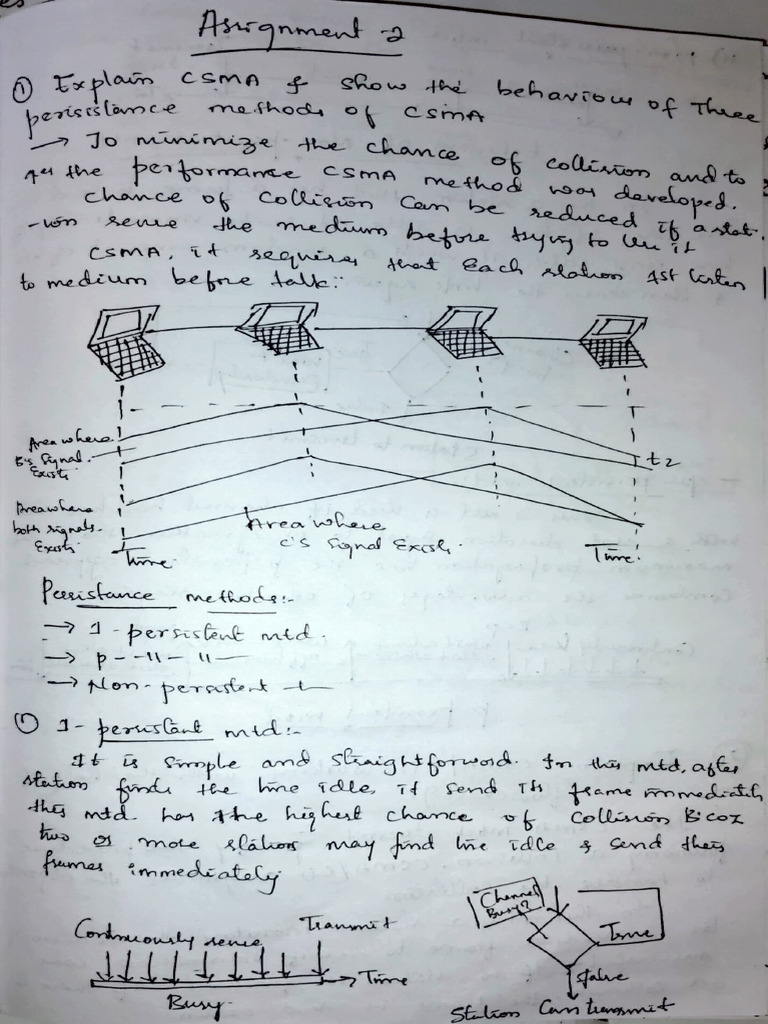 Assignment -2
① Explain CSMA & show the behaviour of Three
persistance methods of CSMA
→ To minimize the chance of collision and to
the performance CSMA method was developed.
chance of Collision Can be reduced if a stat.
-ion sense the medium before trying to Use it
CSMA, it requires that Each station 1st listen
to medium before talk:-
Area where
B's Signal
Exists
t2
Area where
both signals
Exists
Area where
C's Signal Exists.
Time
Time
Persistance methods:-
→ 1-persistent mtd.
→ p- -11- 11-
→ Non-persistent -1-
① 1- persistant mtd:-
It is Simple and Straightforword. In this mtd, after
station finds the line idle, it send its frame immediately
this mtd. has the highest chance of Collision Bcoz
two or more station may find line idle & send their
frames immediately
Channel
Busy?
Continuously sense
Transmit
True
Time
Busy
false
Station Can transmit